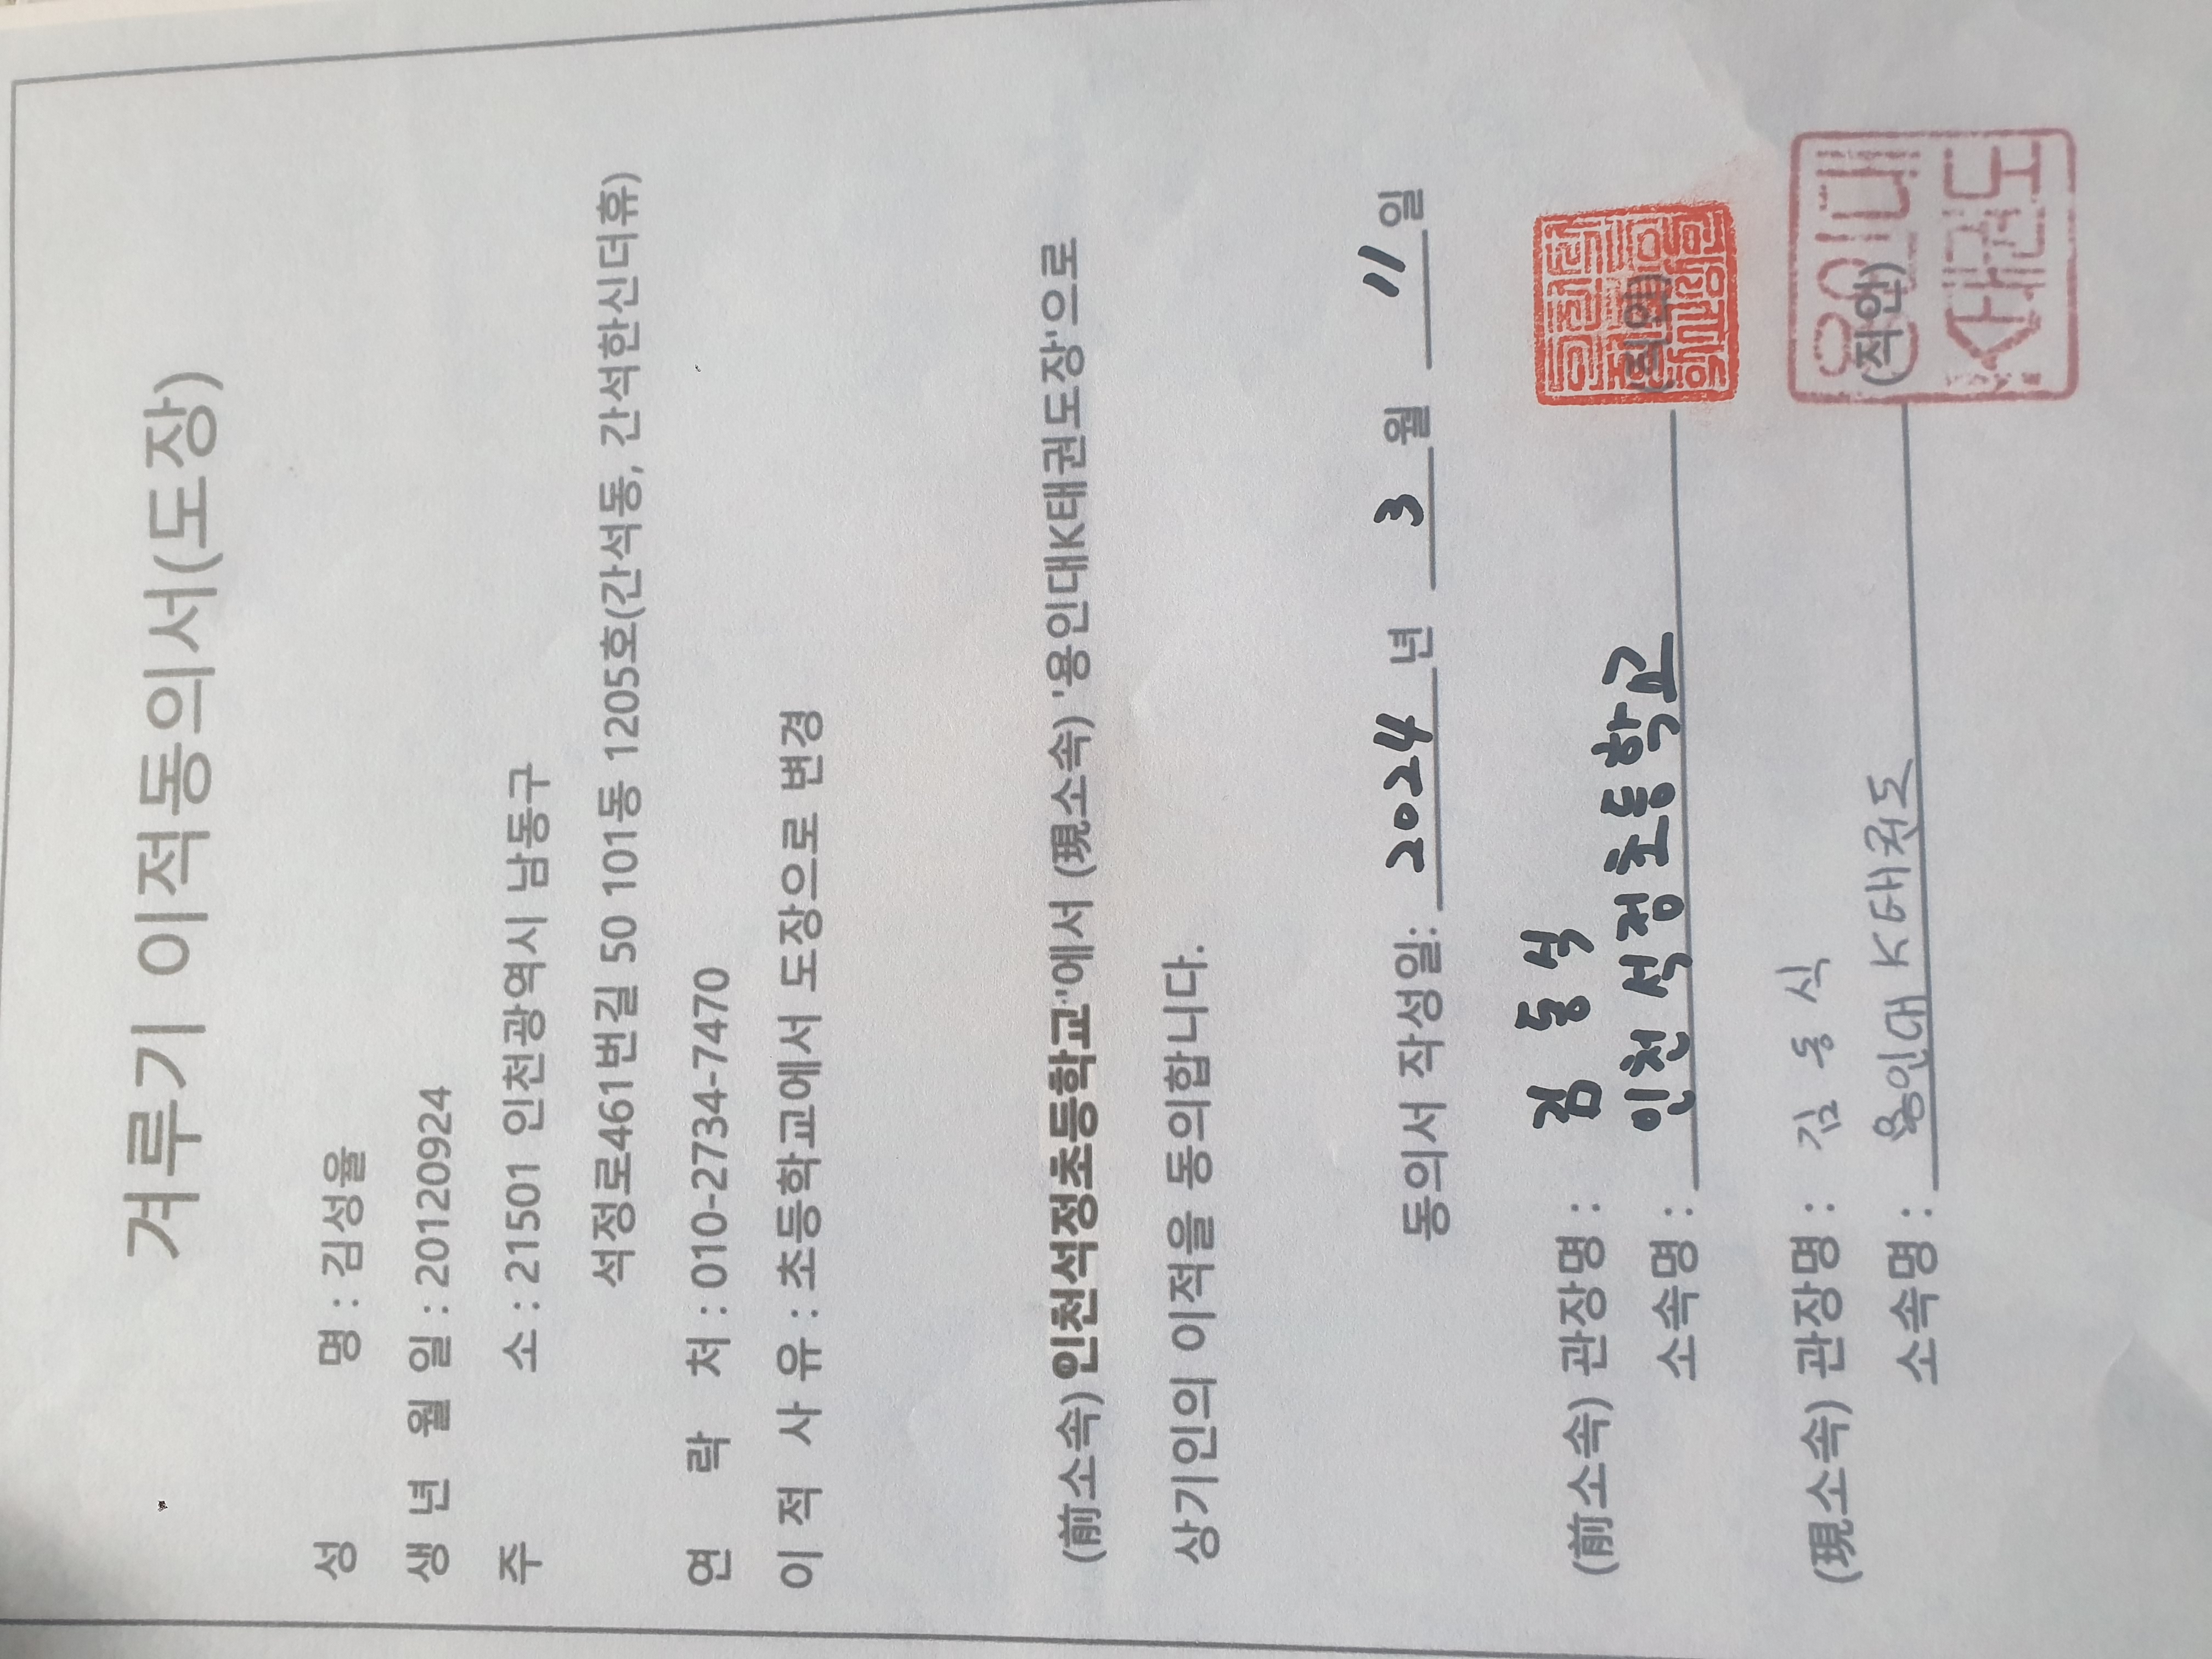 겨루기 이적동의서(도장)
성 명 : 김성율
생 년 월 일 : 20120924
주 소 : 21501 인천광역시 남동구
석정로461번길 50 101동 1205호(간석동, 간석한신더휴)
연 락 처 : 010-2734-7470
이 적 사 유 : 초등학교에서 도장으로 변경
(前소속) 인천석정초등학교'에서 (現소속) '용인대K태권도장'으로
상기인의 이적을 동의합니다.
동의서 작성일: 2024 년 3 월 11 일
(前소속) 관장명 : 김 동 석
소속명 : 인천석정초등학교 (직인)
(現소속) 관장명 : 김 동 식
소속명 : 용인대 K태권도 (직인)
용인대
K태권도